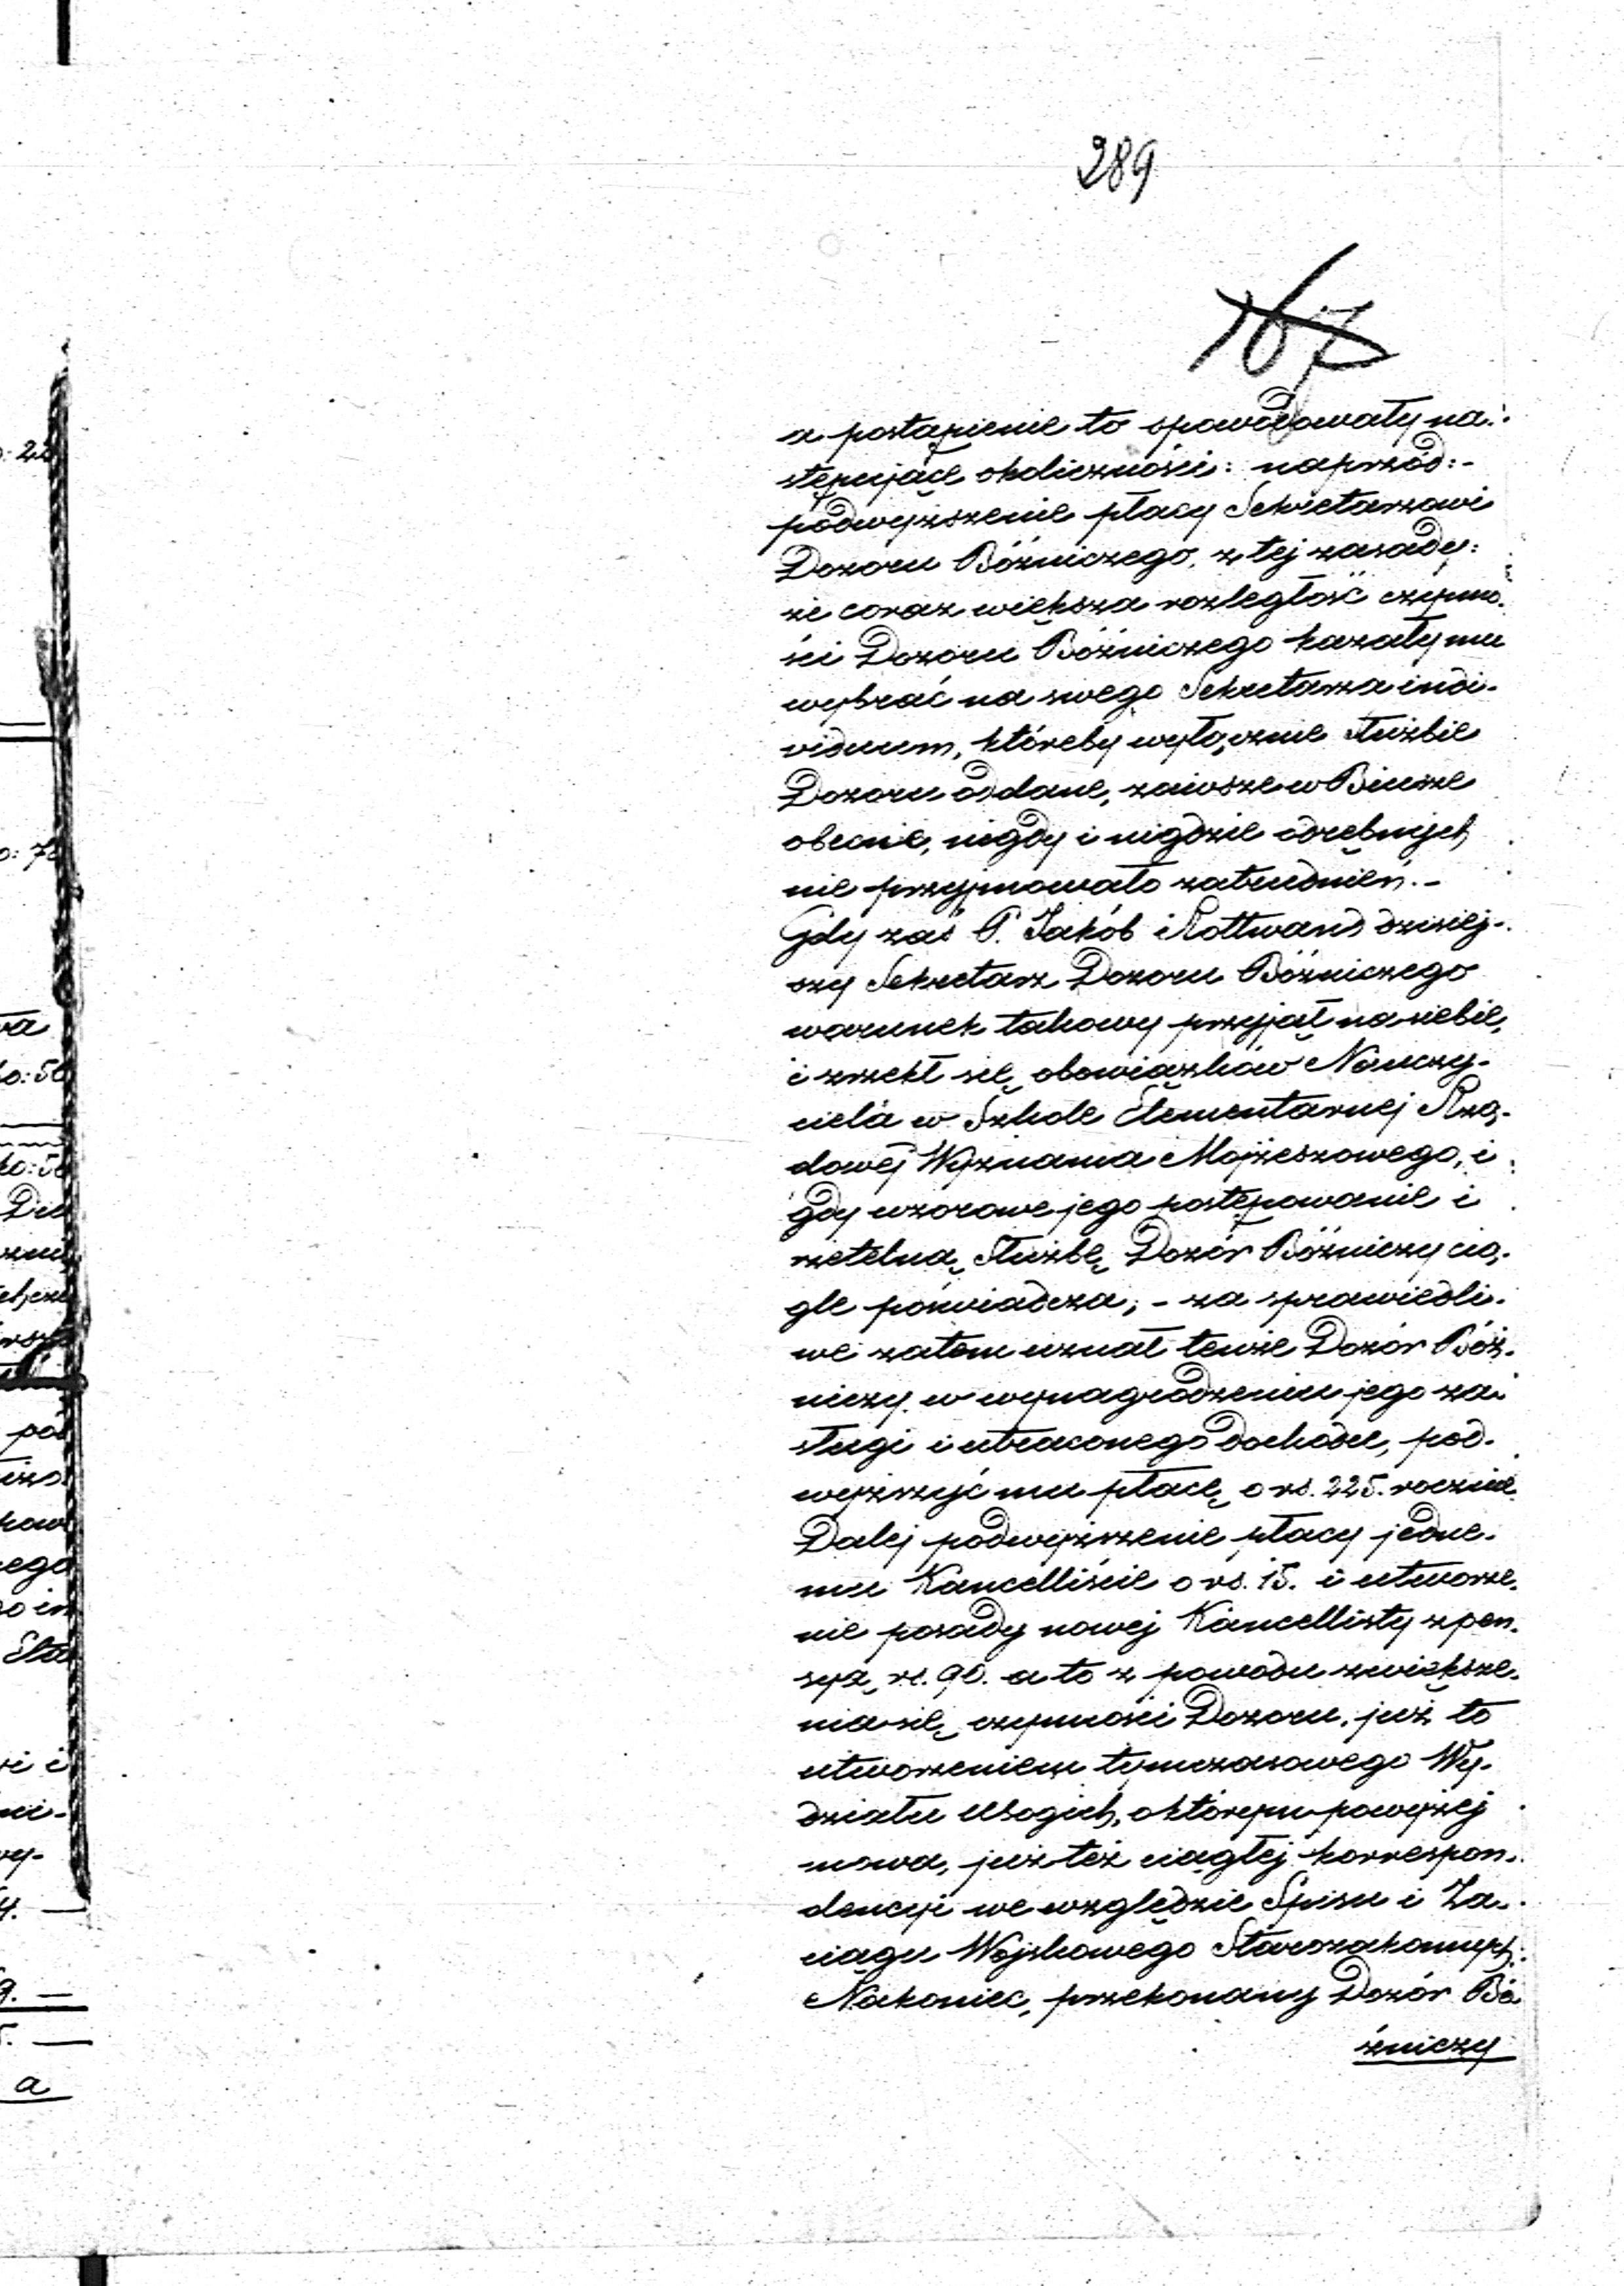 289
167
a postąpienie to spowodowały na-
stępujące okoliczności: naprzód:-
podwyższenie płacy Sekretarzowi
Dozoru Bóżniczego, z tej zasady:
że coraz większa rozległość czynno-
ści Dozoru Bóżniczego kazały mu
wybrać na swego Sekretarza indi-
viduum, któreby wyłącznie służbie
Dozoru oddane, zawsze w Biurze
obecne, nigdy i nigdzie odrębnych
nie przyjmowało zatrudnień.-
Gdy zaś P. Jakób Rottwand dzisiej-
szy Sekretarz Dozoru Bóżniczego
warunek takowy przyjął na siebie,
i zrzekł się obowiązków Nauczy-
ciela w Szkole Elementarnej Rzą-
dowej Wyznania Mojżeszowego, i
gdy wzorowe jego postępowanie i
rzetelną służbę Dozór Bóżniczy cią-
gle poświadcza; - za sprawiedli-
we zatem uznał tenże Dozór Bóż-
niczy w wynagrodzeniu jego za-
sługi i utraconego dochodu, pod-
wyższyć mu płacę o rs. 225. rocznie
Dalej podwyższenie płacy jedne-
mu Kancelliście o rs. 15. i utworze-
nie posady nowej Kancellisty z pen-
syą rs. 90. a to z powodu zwiększe-
nia się czynności Dozoru, już to
utworzeniem tymczasowego Wy-
działu Ubogich, o którym powyżej
mowa, już też ciągłej korrespon-
dencyi we względzie Spisu i Za-
ciągu Wojskowego Starozakonnych.
Nakoniec, przekonany Dozór Bó
żniczy